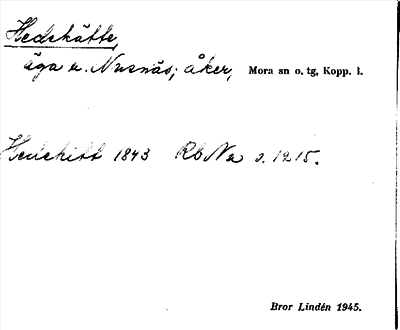 Hedskätte,
äga u. Nusnäs; åker, Mora sn o. tg, Kopp. l.
Hedskitt 1843 Rb Na s. 1215.
Bror Lindén 1945.